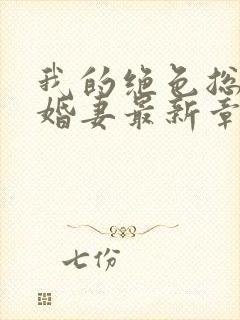 我的绝色总
婚妻最新章
七份